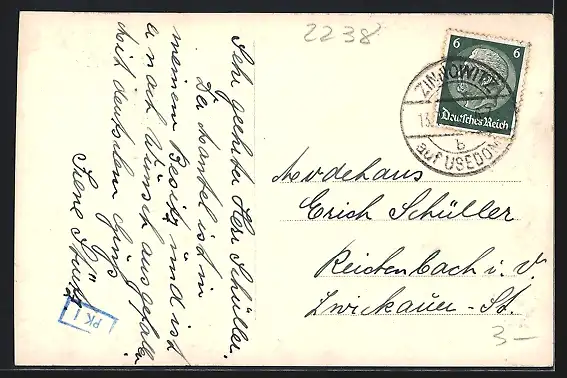 2238
Sehr geehrter Herr Schüller.
Der Mantel ist in
meinem Besitz und ist
nach Wunsch ausgefallen
Mit deutschem Gruß
Irene
PK
6 6
Deutsches Reich
ZINNOWITZ
13.
b
auf USEDOM
Modehaus
Erich Schüller
Reichenbach i. V.
Zwickauer-St.
3-